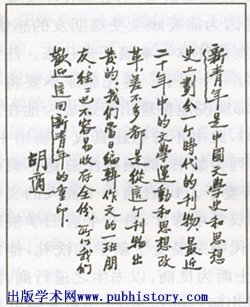 新青年是中國文學史和思想
史上劃分一个時代的刊物。最近
二十年中的文學運動和思想改
革，差不多都是從這个刊物出
發的。我們當日編輯作文的一班朋
友，往〻也不容易收存全份，所以我們
歡迎這回新青年的重印。
胡適
出版学术网www.pubhistory.com